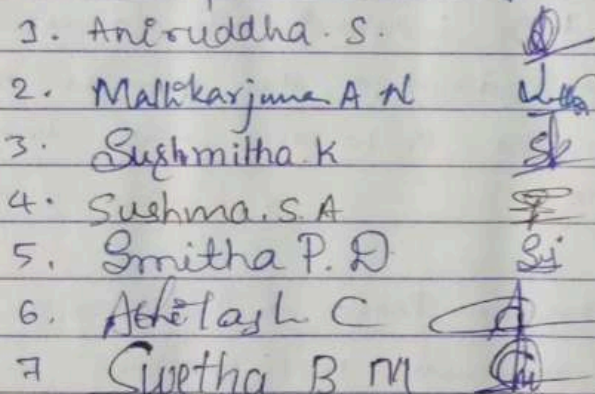 1. Aniruddha. S.
2. Mallikarjuna A N
3. Sushmitha. K
4. Sushma. S. A
5. Smitha P. D
6. Abhilash C
7 Swetha B M